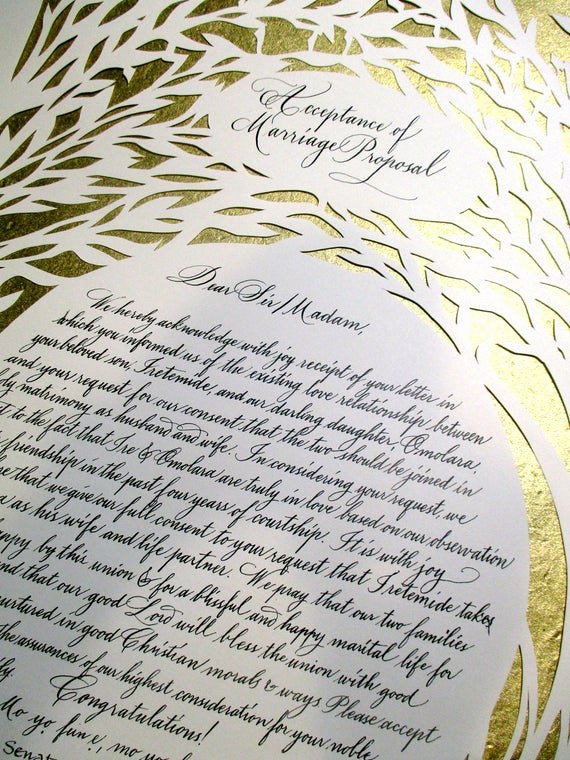 Acceptance of
Marriage Proposal
Dear Sir/Madam,
We hereby acknowledge with joy receipt of your letter in
which you informed us of the existing love relationship between
your beloved son, Iretemide and our darling daughter, Omolara,
and your request for our consent that the two should be joined in
matrimony as husband and wife. In considering your request, we
to the fact that Ire & Omolara are truly in love based on our observation
friendship in the past four years of courtship. It is with joy
that we give our full consent to your request that Iretemide takes
as his wife and life partner. We pray that our two families
by this union & for a blissful and happy marital life for
that our good Lord will bless the union with good
nurtured in good Christian morals & ways Please accept
the assurances of our highest consideration for your noble
Congratulations!
Mo yo fun e, mo yo